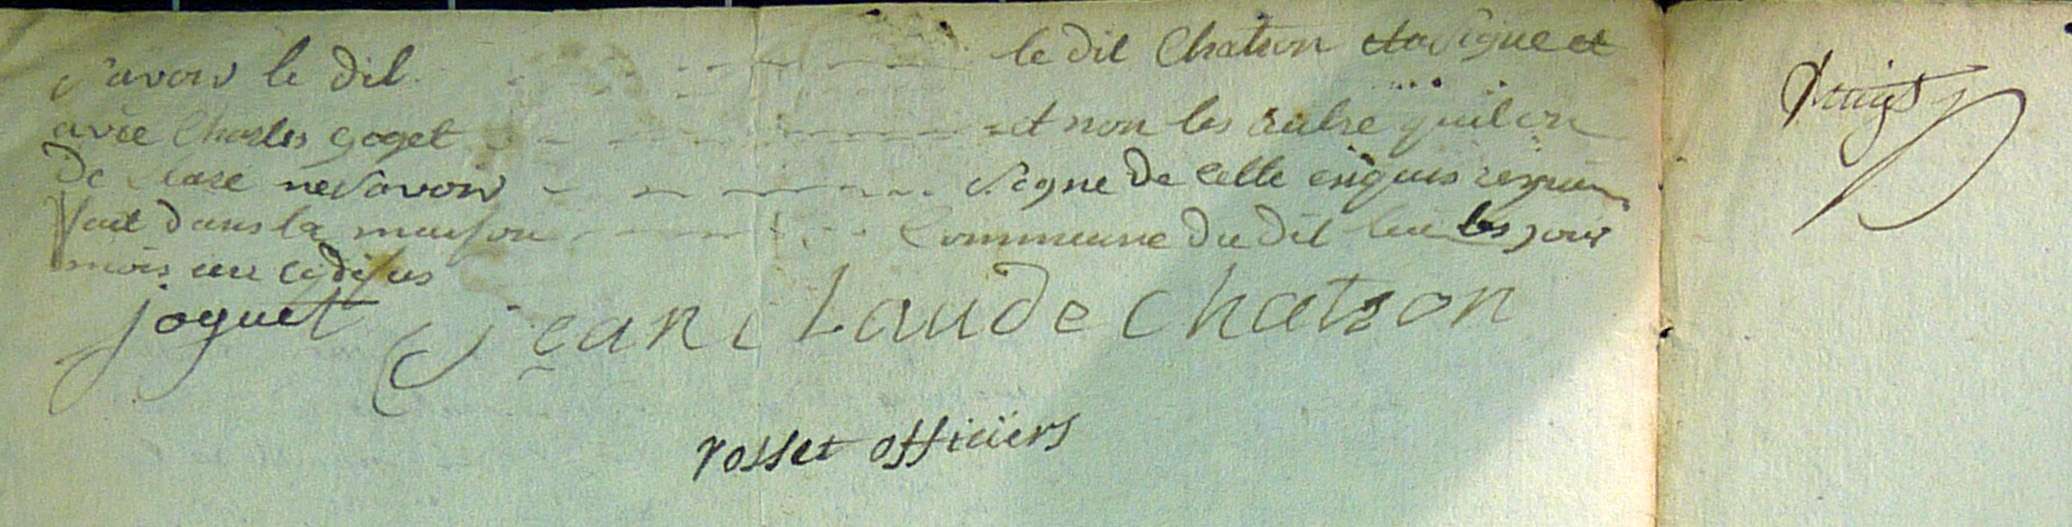 savoir le dit le dit Chatron et a signe et
avec Charles goget et non les autre quil on
De clare ne Savoir Signe De Celle enquis
fait dans la maison Commune du dit lieu les jour
mois an cy desus
joguet jean claude chatron
rosset officiers